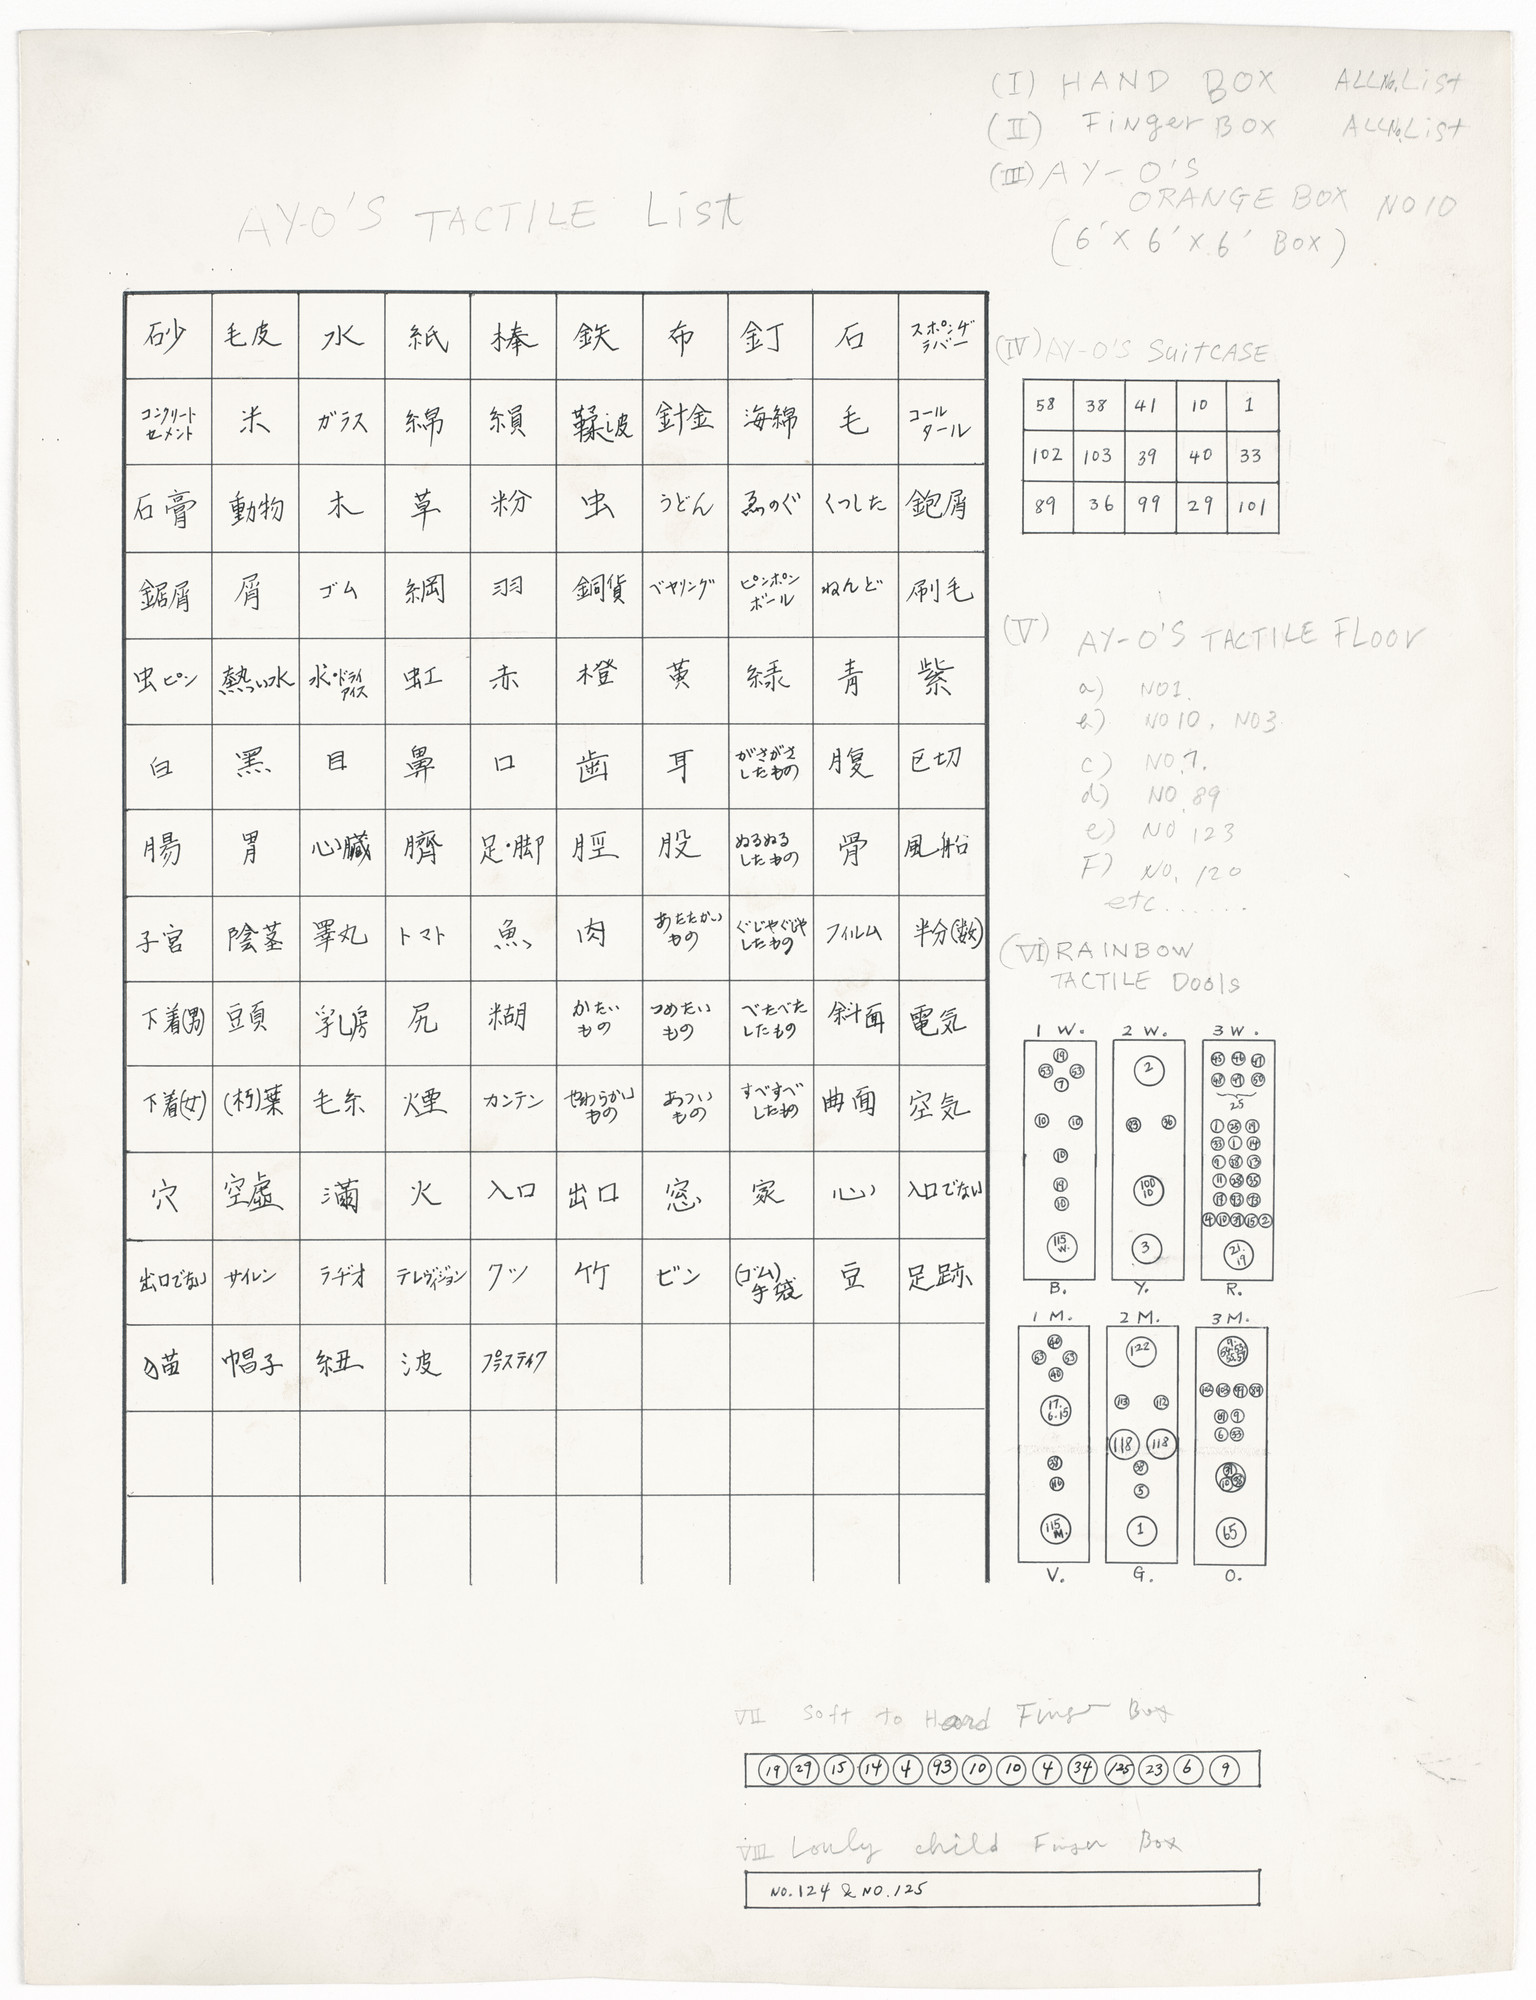 (I) HAND BOX ALL No. List
(II) Finger BOX ALL No. List
(III) AY-O'S
ORANGE BOX NO 10
(6' X 6' X 6' BOX)
AY-O'S TACTILE List
砂 毛皮 水 紙 棒 鉄 布 釘 石 スポングラバー
コンクリートセメント 米 ガラス 綿 鞣皮 針金 海綿 毛 コールタール
石膏 動物 木 草 粉 虫 うどん ゑのぐ くつした 鉋屑
鋸屑 屑 ゴム 綱 羽 銅貨 ベヤリング ピンポンボール ねんど 刷毛
虫ピン 熱つい水 水・ドライアイス 虹 赤 橙 黄 緑 青 紫
白 黒 目 鼻 口 歯 耳 がさがさしたもの 腹 区切
腸 胃 心臓 臍 足・脚 脛 股 ぬるぬるしたもの 骨 風船
子宮 陰茎 睾丸 トマト 魚 肉 あたたかいもの ぐじゃぐじゃしたもの フィルム 半分(数)
下着(男) 豆頁 乳房 尻 糊 かたいもの つめたいもの べたべたしたもの 斜面 電気
下着(女) (朽)葉 毛糸 煙 カンテン やわらかいもの あついもの すべすべしたもの 曲面 空気
穴 空虚 満 火 入口 出口 窓 家 心 入口でない
出口でない サイレン ラヂオ テレヴィジョン クツ 竹 ビン (ゴム)手袋 豆 足跡
猫 帽子 紐 波 プラスティク
(IV) AY-O'S SuitCASE
58 38 41 10 1
102 103 39 40 33
89 36 99 29 101
(V) AY-O'S TACTILE FLoor
a) NO1.
b) NO 10, NO3
c) NO.7.
d) NO.89
e) NO 123
F) NO, 120
etc.......
(VI) RAINBOW
TACTILE Dools
1 W. 2 W. 3 W.
19 2 45 46 47
53 53
7 25
10 10 83 36 1 25 19
10
19 100 10
10
115 W. 3 21. 19
B. Y. R.
1 M. 2 M. 3 M.
40 122
53 53
40
17. 6.15 113 112
118 118
5
115 M. 1 65
V. G. O.
VII Soft to Hard Finger Box
19 29 15 14 4 93 10 10 4 34 125 23 6 9
VIII Lonly child Finger Box
NO. 124 & NO. 125